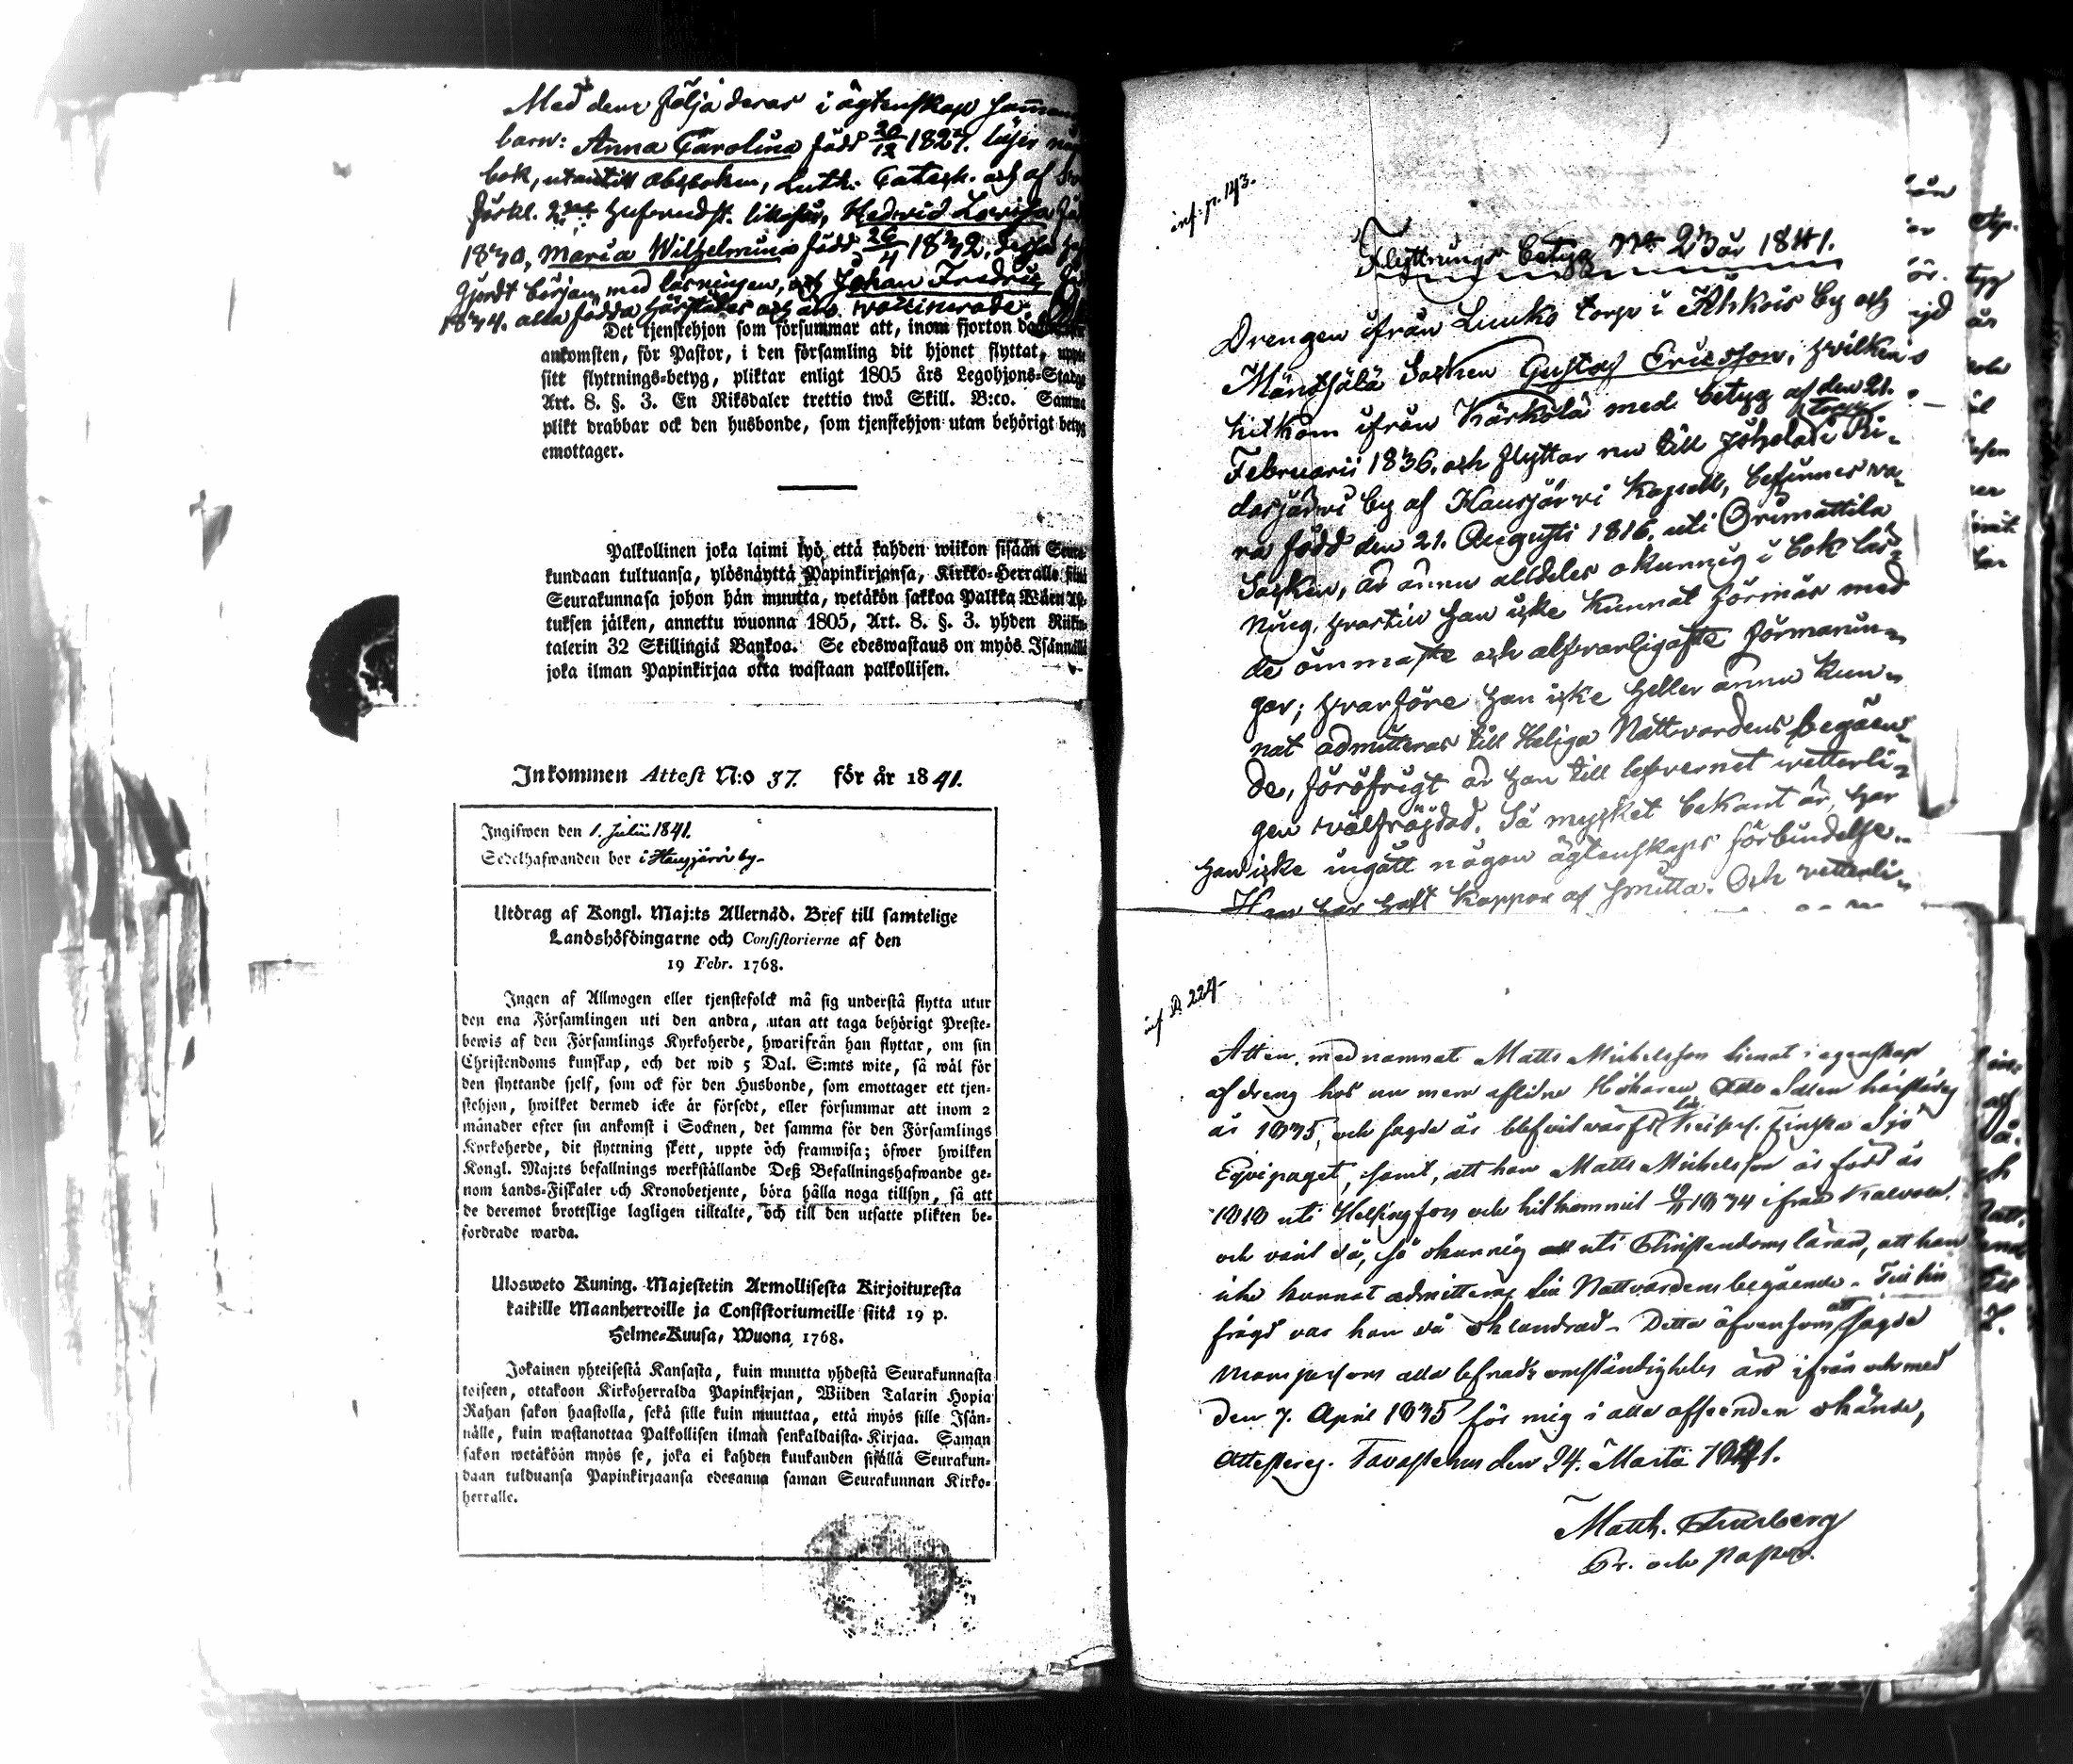 Med dem följa deras i ägtenskap samman
barn: Anna Carolina född 20/12 1827. läser
bok, utantill abcboken, Luth: Catech. och af
förkl. 2ne hufvudst. likaså, Hedvid Lovisa
1830, Maria Wilhelmina född 26/4 1832, dessa
gjordt början med läsningen, och Johan Fredric
1834. alla födda härstädes och äro vaccinerade.
Det tjenstehjon som försummar att, inom fjorton
ankomsten, för Pastor, i den församling dit hjonet flyttat, uppte
sitt flyttnings-betyg, pliktar enligt 1805 års Legohjons-Stadg
Art. 8. §. 3. En Riksdaler trettio twå Skill. B:co. Samma
plikt drabbar ock den husbonde, som tjenstehjon utan behörigt betyg
emottager.
Palkollinen joka laimi lyö, että kahden wiikon sisään Seura-
kundaan tultuansa, ylösnäyttä Papinkirjansa, Kirkko-Herralle siinä
Seurakunnasa johon hän muutta, wetäkön sakkoa Palkka Wäen As-
tuksen jälken, annettu wuonna 1805, Art. 8. §. 3. yhden Riikin-
talerin 32 Skillingiä Bankoa. Se edeswastaus on myös Isännällä
joka ilman Papinkirjaa otta wastaan palkollisen.
Inkommen Attest N:o 37. för år 1841.
Ingifwen den 1. Julii 1841.
Sedelhafwanden bor i Hausjärvi by-
Utdrag af Kongl. Maj:ts Allernåd. Bref till samtelige
Landshöfdingarne och Consistorierne af den
19 Febr. 1768.
Ingen af Allmogen eller tjenstefolck må sig understå flytta utur
den ena Församlingen uti den andra, utan att taga behörigt Preste-
bewis af den Församlings Kyrkoherde, hwarifrån han flyttar, om sin
Christendoms kunskap, och det wid 5 Dal. S:mts wite, så wäl för
den flyttande sjelf, som ock för den Husbonde, som emottager ett tjen-
stehjon, hwilket dermed icke är försedt, eller försummar att inom 2
månader efter sin ankomst i Socknen, det samma för den Församlings
Kyrkoherde, dit flyttning skett, uppte och framwisa; öfwer hwilken
Kongl. Maj:ts befallnings werkställande Deß Befallningshafwande ge-
nom Lands-Fiskaler och Kronobetjente, böra hålla noga tillsyn, så att
de deremot brottslige lagligen tilltalte, och till den utsatte plikten be-
fordrade warda.
Ulosweto Kuning. Majestetin Armollisesta Kirjoituxesta
kaikille Maanherroille ja Consistoriumeille siitä 19 p.
Helme-Kuusa, Wuona 1768.
Jokainen yhteisestä Kansasta, kuin muutta yhdestä Seurakunnasta
toiseen, ottakoon Kirkoherralda Papinkirjan, Wiiden Talarin Hopia
Rahan sakon haastolla, sekä sille kuin muuttaa, että myös sille Isän-
nälle, kuin wastanottaa Palkollisen ilman senkaldaista Kirjaa. Saman
sakon wetäköön myös se, joka ei kahden kuukauden sisällä Seurakun-
daan tulduansa Papinkirjaansa edesanna saman Seurakunnan Kirko-
herralle.
inf. p. 143.
Flyttnings betyg No 23 år 1841.
Drengen ifrån Luuko torp i Ähkois by och
Mäntsälä Socken Gustaf Ericsson, hvilken
hitkom ifrån Kärkölä med betyg af den 21.
Februarii 1836. och flyttar nu till Johola torp i Ri-
dasjärvi by af Hausjärvi Kapell, befinnes va-
ra född den 21. Augusti 1816. uti Orimattila
Socken, är ännu alldeles okunnig i bok läs-
ning, hvartill han icke kunnat förmås med
de ömmaste och alfvarligaste förmanin-
gar; hvarföre han icke heller ännu kun-
nat admitteras till Heliga Nattvardens begåen-
de, föröfrigt är han till lefvernet vetterli-
gen välfräjdad. Så mycket bekant är, har
han icke ingått någon ägtenskaps förbindelse.
Han har haft koppor af smitta. Och vetterli-
inf. p. 224-
Att en, med namnet Matts Michelsson tienat i egenskap
af dreng hos nu mera aflidne Hökaren härstädes
år 1835, och sagde år blifvit värfd till Keiserl. Finska Sjö
Eqvipaget, samt, att han Matts Michelsson är född år
1818 uti Helsingfors och hitkommit 1834 ifrån Kalvola.
och varit då, så okunnig uti Christendoms läran, att han
icke kunnat admitteras till Nattvardens begående. Till sin
frägd var han då oklandrad. Detta äfvensom att sagde
Mans persons alla lefnads omständigheter äro ifrån och med
den 7. April 1835 för mig i alla afseenden okände,
Attesteras. Tavastehus den 24. Martii 1841.
Matth.
Pr. och Past.